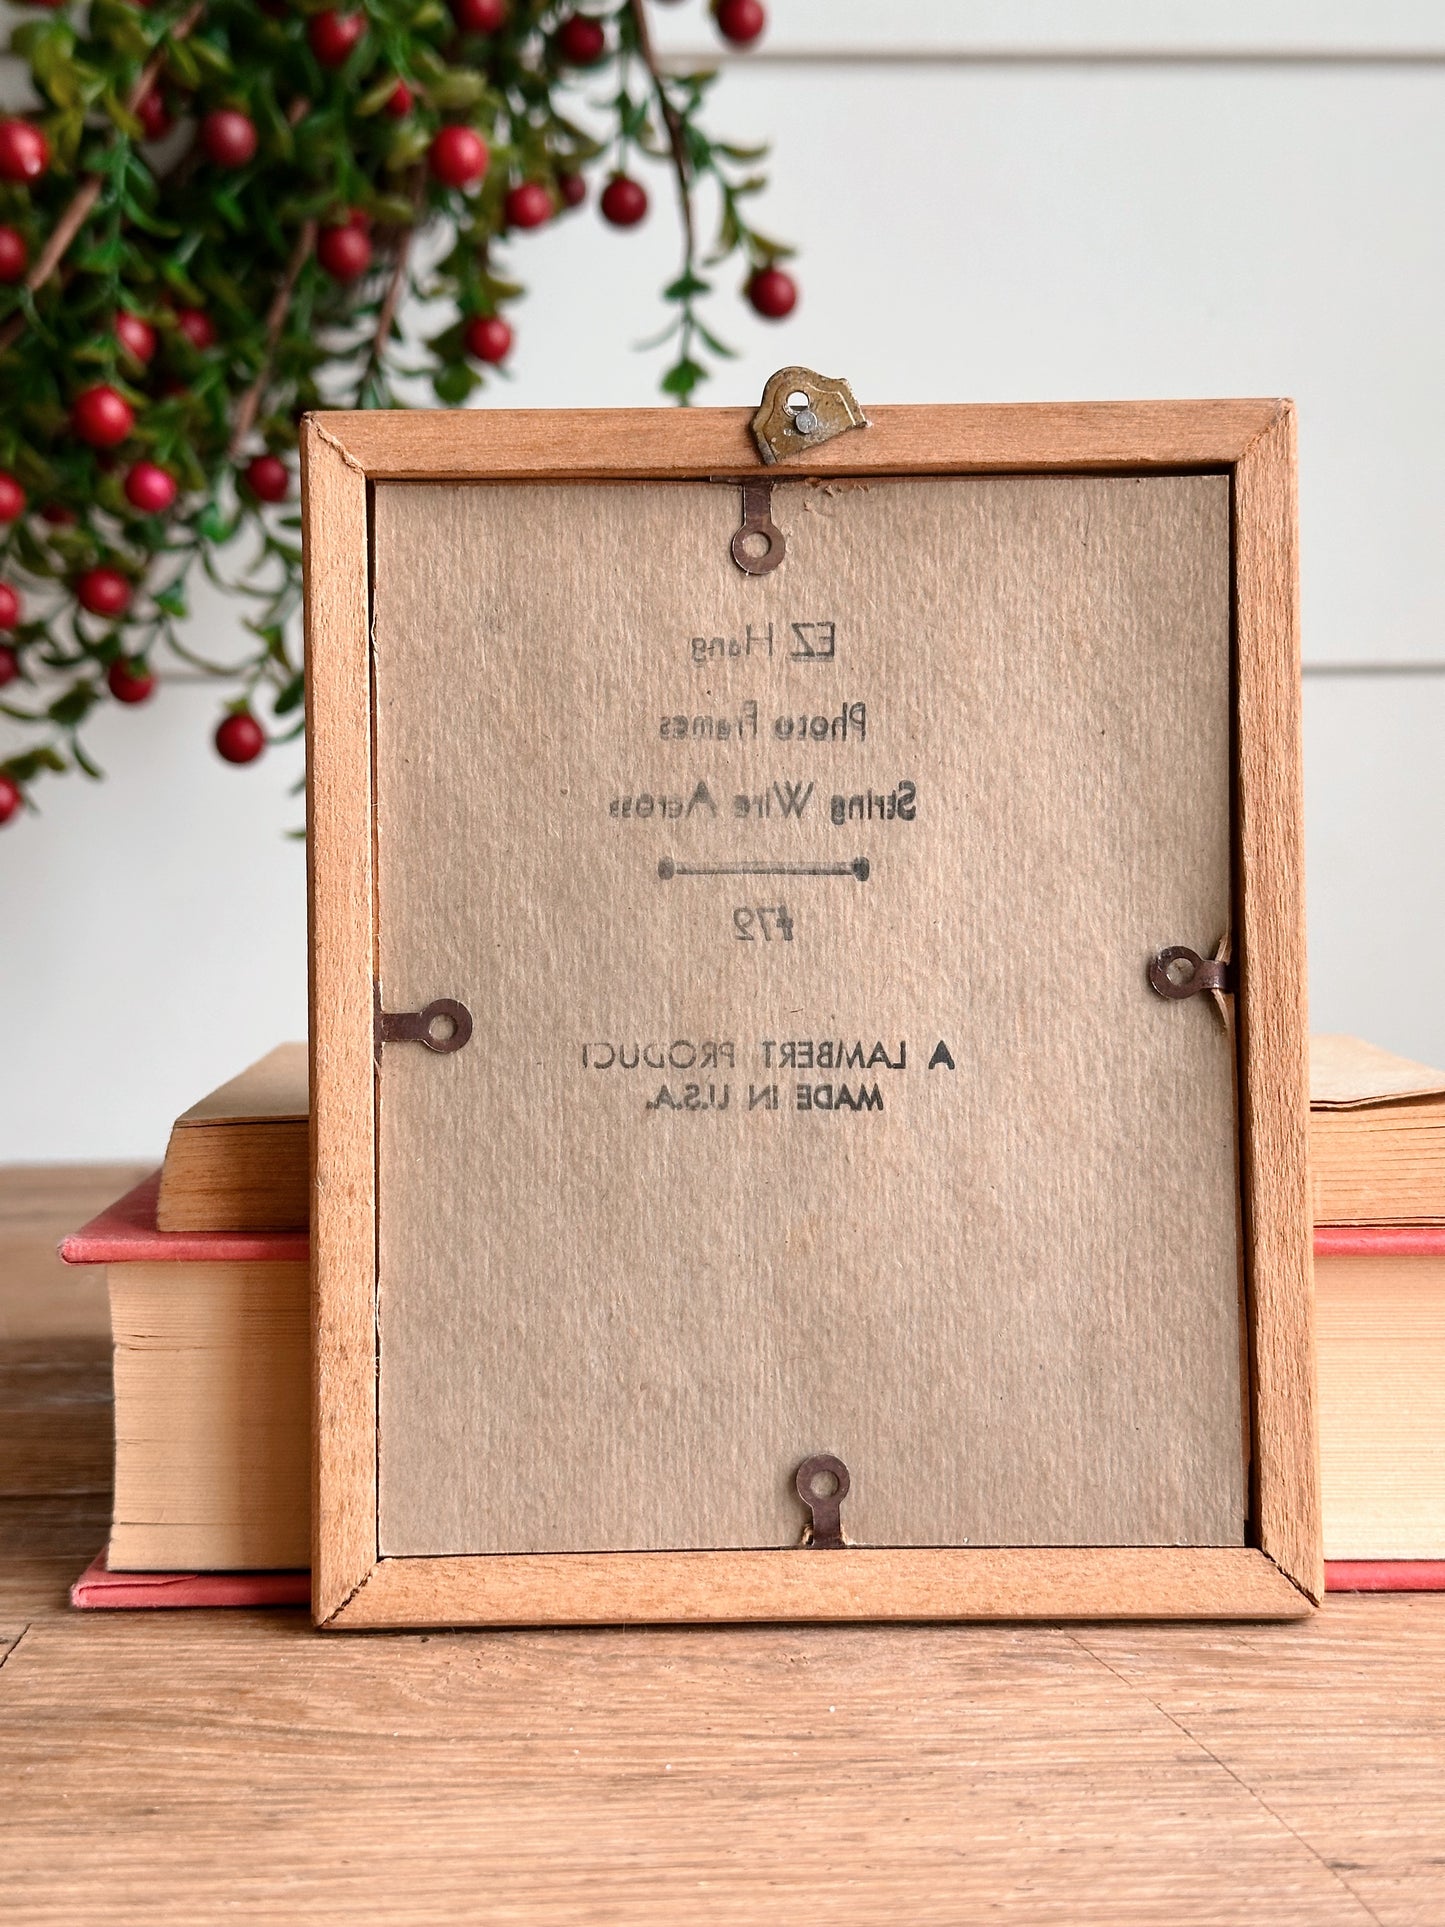 EZ Hang
Photo Frames
String Wire Across
#72
A LAMBERT PRODUCT
MADE IN U.S.A.